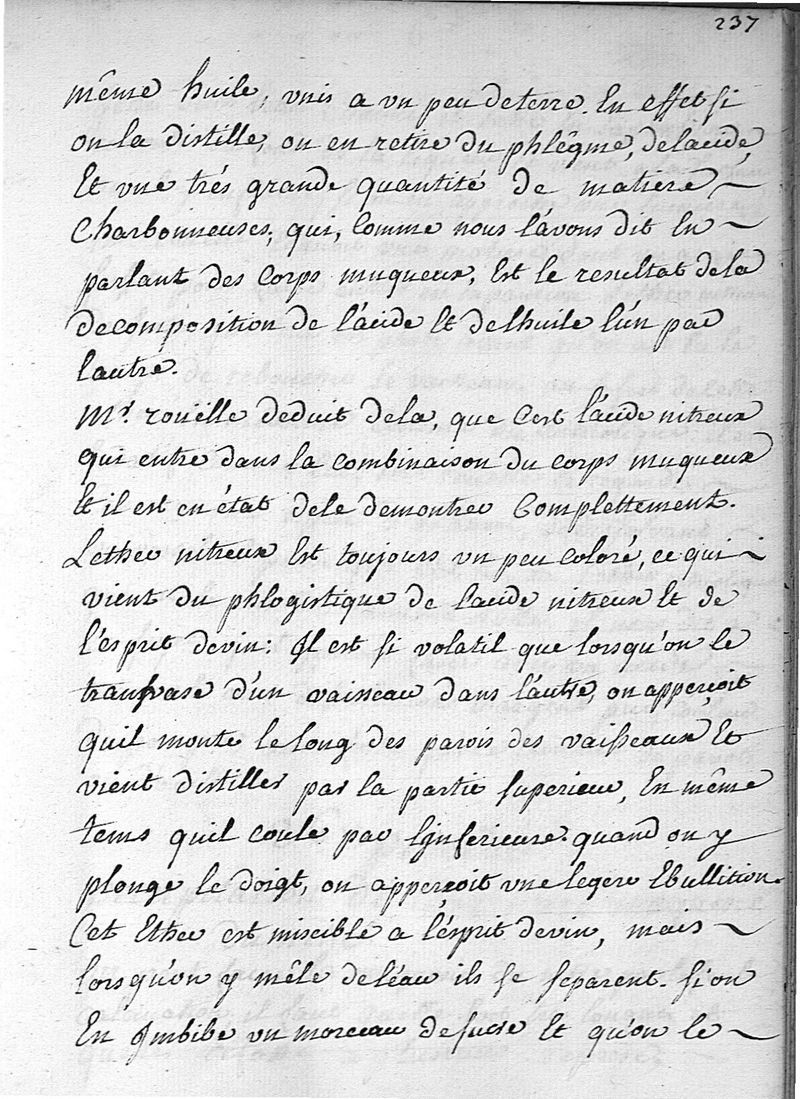 237
même huile, unis a un peu de terre. En effet si
on la distille, on en retire du phlêgme, de lacide,
Et une trés grande quantité de matiere
Charbonneuses, qui, comme nous l'avons dit En
parlant des corps muqueux, Est le resultat dela
decomposition de l'acide Et de lhuile lún par
lautre.
Mr. roüelle deduit dela, que C'est l'acide nitreux
qui entre dans la combinaison du corps muqueux
Et il est en état dele demontrer Complettement.
Lether nitreux Est toujours un peu coloré, ce qui
vient du phlogistique de lacide nitreux Et de
l'ésprit devin: Il est si volatil que lorsqu'on le
transvase d'un vaisseau dans l'autre, on apperçoit
quil monte le long des parois des vaisseaux Et
vient distiller par la partie superieur, En même
tems quil coule par l'inferieure. quand on y
plonge le doigt, on apperçoit une legere Ebullition.
Cet Ether est miscible a l'ésprit devin, mais
lorsqu'on y mêle de l'éau ils se separent. si on
En Imbibe un morceau de sucre Et qu'on le